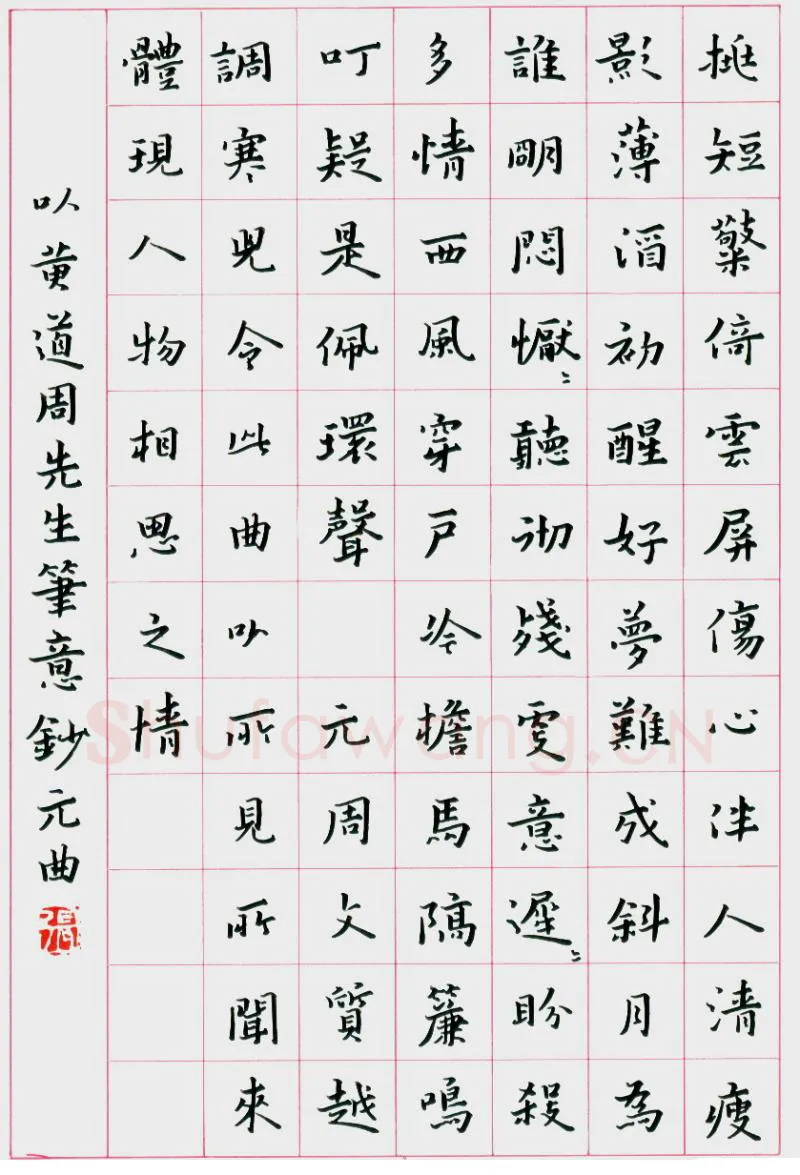 挑短檠倚雲屏傷心泮人清瘦
影薄酒初醒好夢難成斜月為
誰朙悶懨〻聽彻殘更意遲〻盼殺
多情西風穿戶冷檐馬隔簾鳴
叮疑是佩環聲 元周文質越
調寒兒令此曲以所見所聞來
體現人物相思之情
以黃道周先生筆意鈔元曲
Shufawang.CN